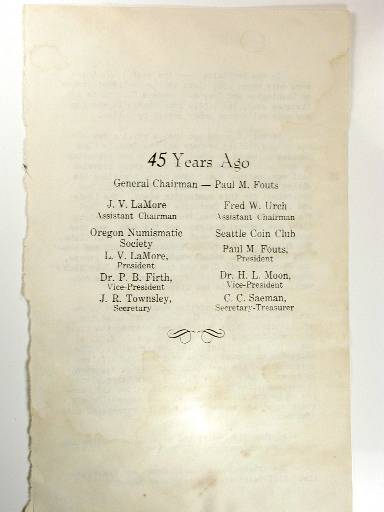 45 Years Ago
General Chairman — Paul M. Fouts
J. V. LaMore
Assistant Chairman
Fred W. Urch
Assistant Chairman
Oregon Numismatic
Society
L. V. LaMore,
President
Dr. P. B. Firth,
Vice-President
J. R. Townsley,
Secretary
Seattle Coin Club
Paul M. Fouts,
President
Dr. H. L. Moon,
Vice-President
C. C. Saeman,
Secretary-Treasurer